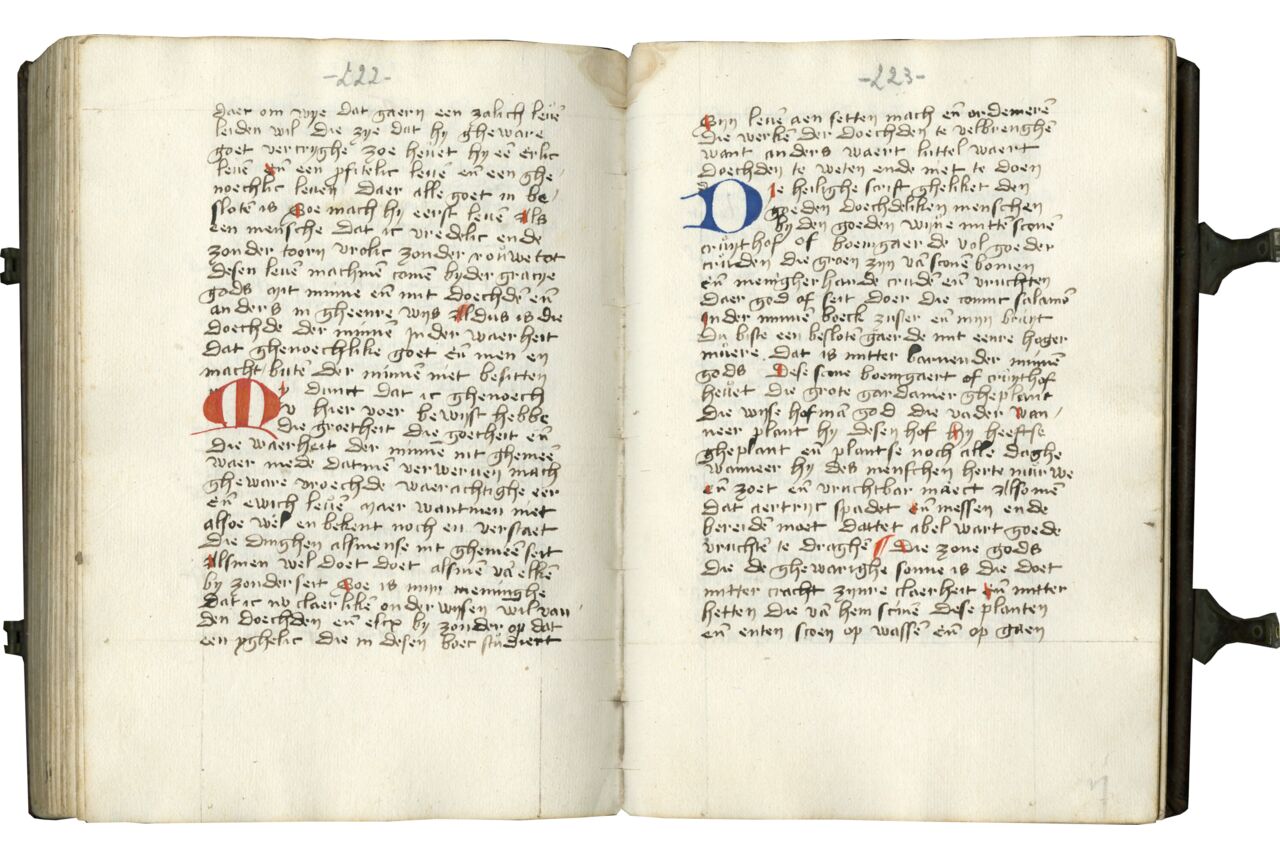 -222-
daer om wye dat gaern een zalich leuē
leiden wil die zye dat hy gheware
goet vercryghe zoe heuet hy eē erlic
leuē eñ een pfitelic leuē eñ een ghe
noechlic leuen daer alle goet in be
slotē is Soe mach hy eerst leuē Als
een mensche dat ic vredelic ende
zonder toorn vrolic zonder rouwe tot
desen leuē machmē comē byder gracye
gods mit minne eñ mit doechdē eñ
anders in gheenre wys Aldus is die
doechde der minnē In der waerheit
dat ghenoechlike goet eñ men en
macht butē der minnē niet besitten
My dunct dat ic ghenoech
v hier voer bewyst hebbe
die groetheit die goetheit eñ
die waerheit der minnē int ghemeē
waer mede datmē verweruen mach
gheware vroechde waerachtighe eer
eñ ewich leuē maer wantmen niet
alsoe wel en bekent noch en verstaet
die dinghen alsmense int ghemeē seit
Alsmen wel doet doet alsmē vā elkē
by zonder seit Soe is mijn meninghe
dat ic nv claerlikē onderwysen wil van
den doechden eñ elcx by zonder op dat
een yghelic die in desen boec studiert
-223-
Sijn leuē aen setten mach eñ ordenierē
die werkē der doechden te volbrenghē
want anders waert luttel waert
doechden te weten ende niet te doen
Die heilighe scrift gheliket den
goeden doechdeliken menschen
by den goeden wijnē mittē sconē
cruythof of boemgaerde vol goeder
crudē die groen zijn vā sconē bomen
eñ menigherhande crudē eñ vruchten
daer god of seit doer die coninc salamō
In der minnē boeck zuster eñ mijn bruyt
du biste een beslotē gaerde mit eenre hoger
mūere dat is mitter barnender minnē
gods Dese scone boemgaert of cruythof
heuet die grote gardanier gheplant
die wyse hofmā god die vader wan
neer plant hy desen hof Hy heeftse
gheplant eñ plantse noch alle daghe
wanneer hy des menschen herte murwe
eñ zoet eñ vruchtbar maect Alsomē
dat aertryc spadet eñ messen ende
bereidē moet dattet abel wart goede
vruchtē te draghē Die zone gods
die de ghewarighe sonne is die doet
mitter cracht zynre claerheit eñ mitter
hetten die vā hem scinē dese planten
eñ enten scoen op wassē eñ op gaen